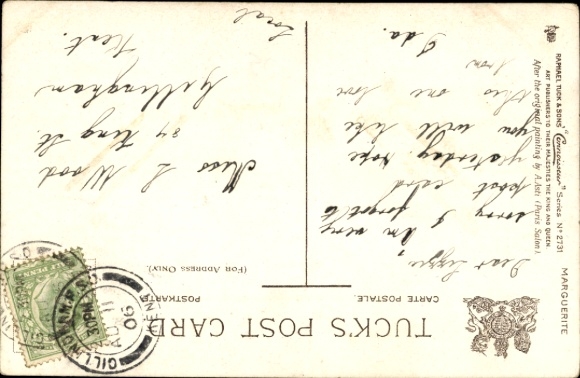 MARGUERITE
RAPHAEL TUCK & SONS' "Connoisseur" Series Nº 2731
ART PUBLISHERS TO THEIR MAJESTIES THE KING AND QUEEN.
After the original painting by A. Asti (Paris Salon).
TUCK'S POST CARD
CARTE POSTALE
POSTKARTE
(FOR ADDRESS ONLY).
Dear Lizzie,
Am very
sorry I forgot to
post card
yesterday. hope
you will like
this one love
from
Ida.
Miss L Wood
84 King St.
Gillingham
Kent.
Local
GILLINGHAM
AU 11
06